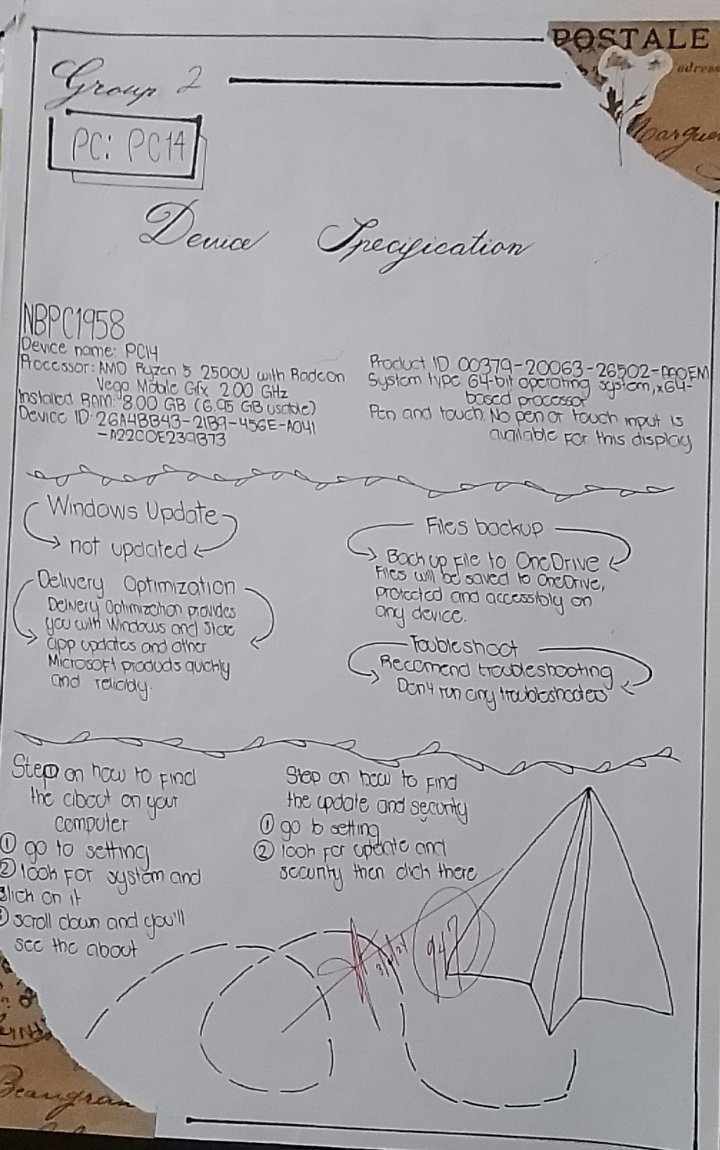 POSTALE
adress
Group 2
PC: PC14
Device Specification
NBPC1958
Device name: PC14
Processor: AMD Ryzen 5 2500U with Radeon
Vega Mobile Gfx 2.00 GHz
Installed RAM: 8.00 GB (6.95 GB usable)
Device ID: 26A4BB43-21B9-456E-A041
-A22C0E239B73
Product ID 00379-20063-26502-AAOEM
System type 64-bit operating system, x64-
based processor
Pen and touch. No pen or touch input is
available for this display
Windows Update
not updated
Delivery Optimization
Delivery Optimization provides
you with Windows and Store
app updates and other
Microsoft products quickly
and reliably.
Files backup
Back up File to OneDrive
Files will be saved to OneDrive,
protected and accessibly on
any device.
Toubleshoot
Recomend troubleshooting
Don't run any troubleshooters
Step on how to find
the about on your
computer
① go to setting
② look for system and
click on it
③ scroll down and you'll
see the about
Step on how to find
the update and security
① go to setting
② look for update and
security then click there
Beaugran